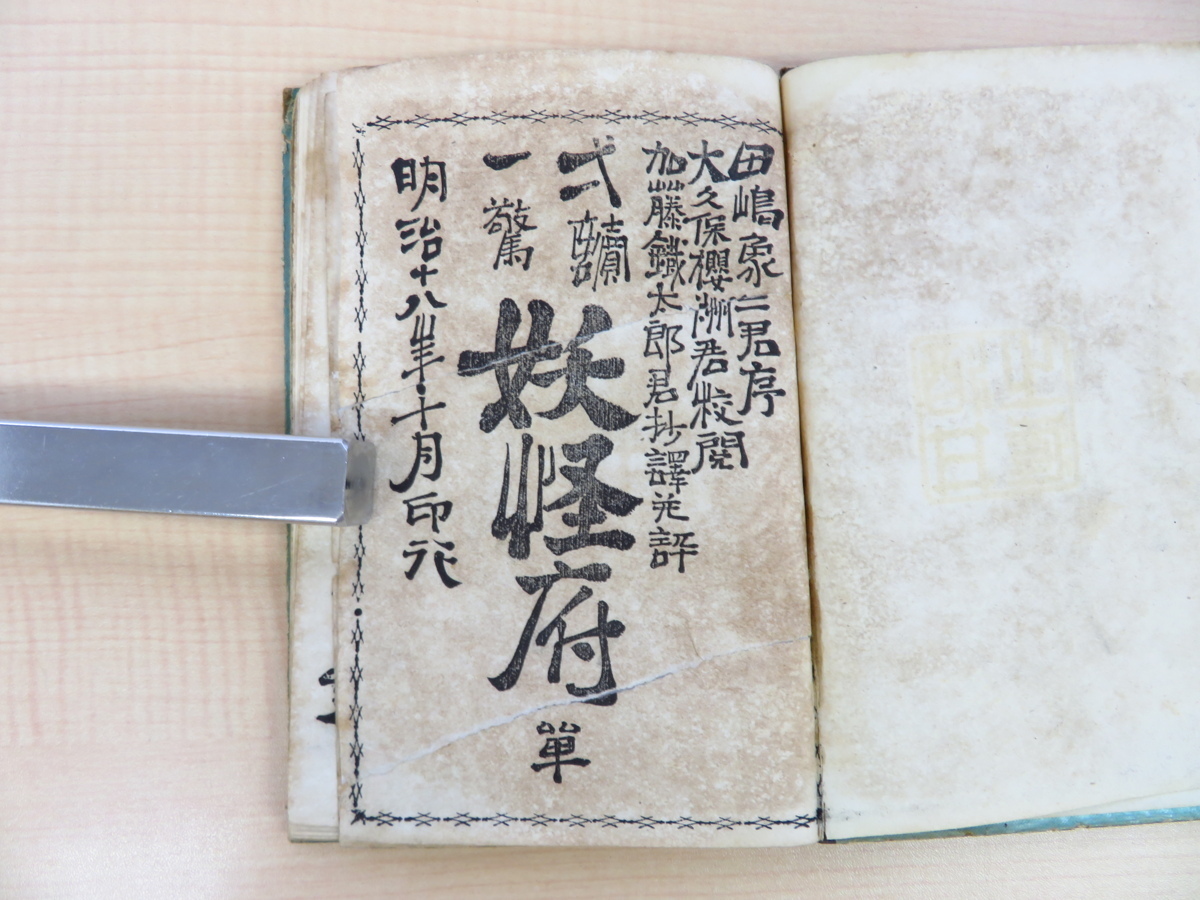 田嶋象二君序
大久保櫻洲君校閲
加藤鐵太郎君抄譯并評
弍讀
一驚
妖怪府
單
明治十八年十月印行